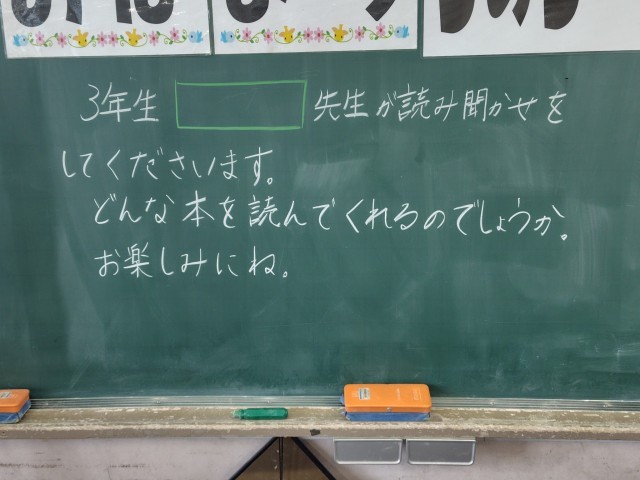 3年生 先生が読み聞かせを
してくださいます。
どんな本を読んでくれるのでしょうか。
お楽しみにね。